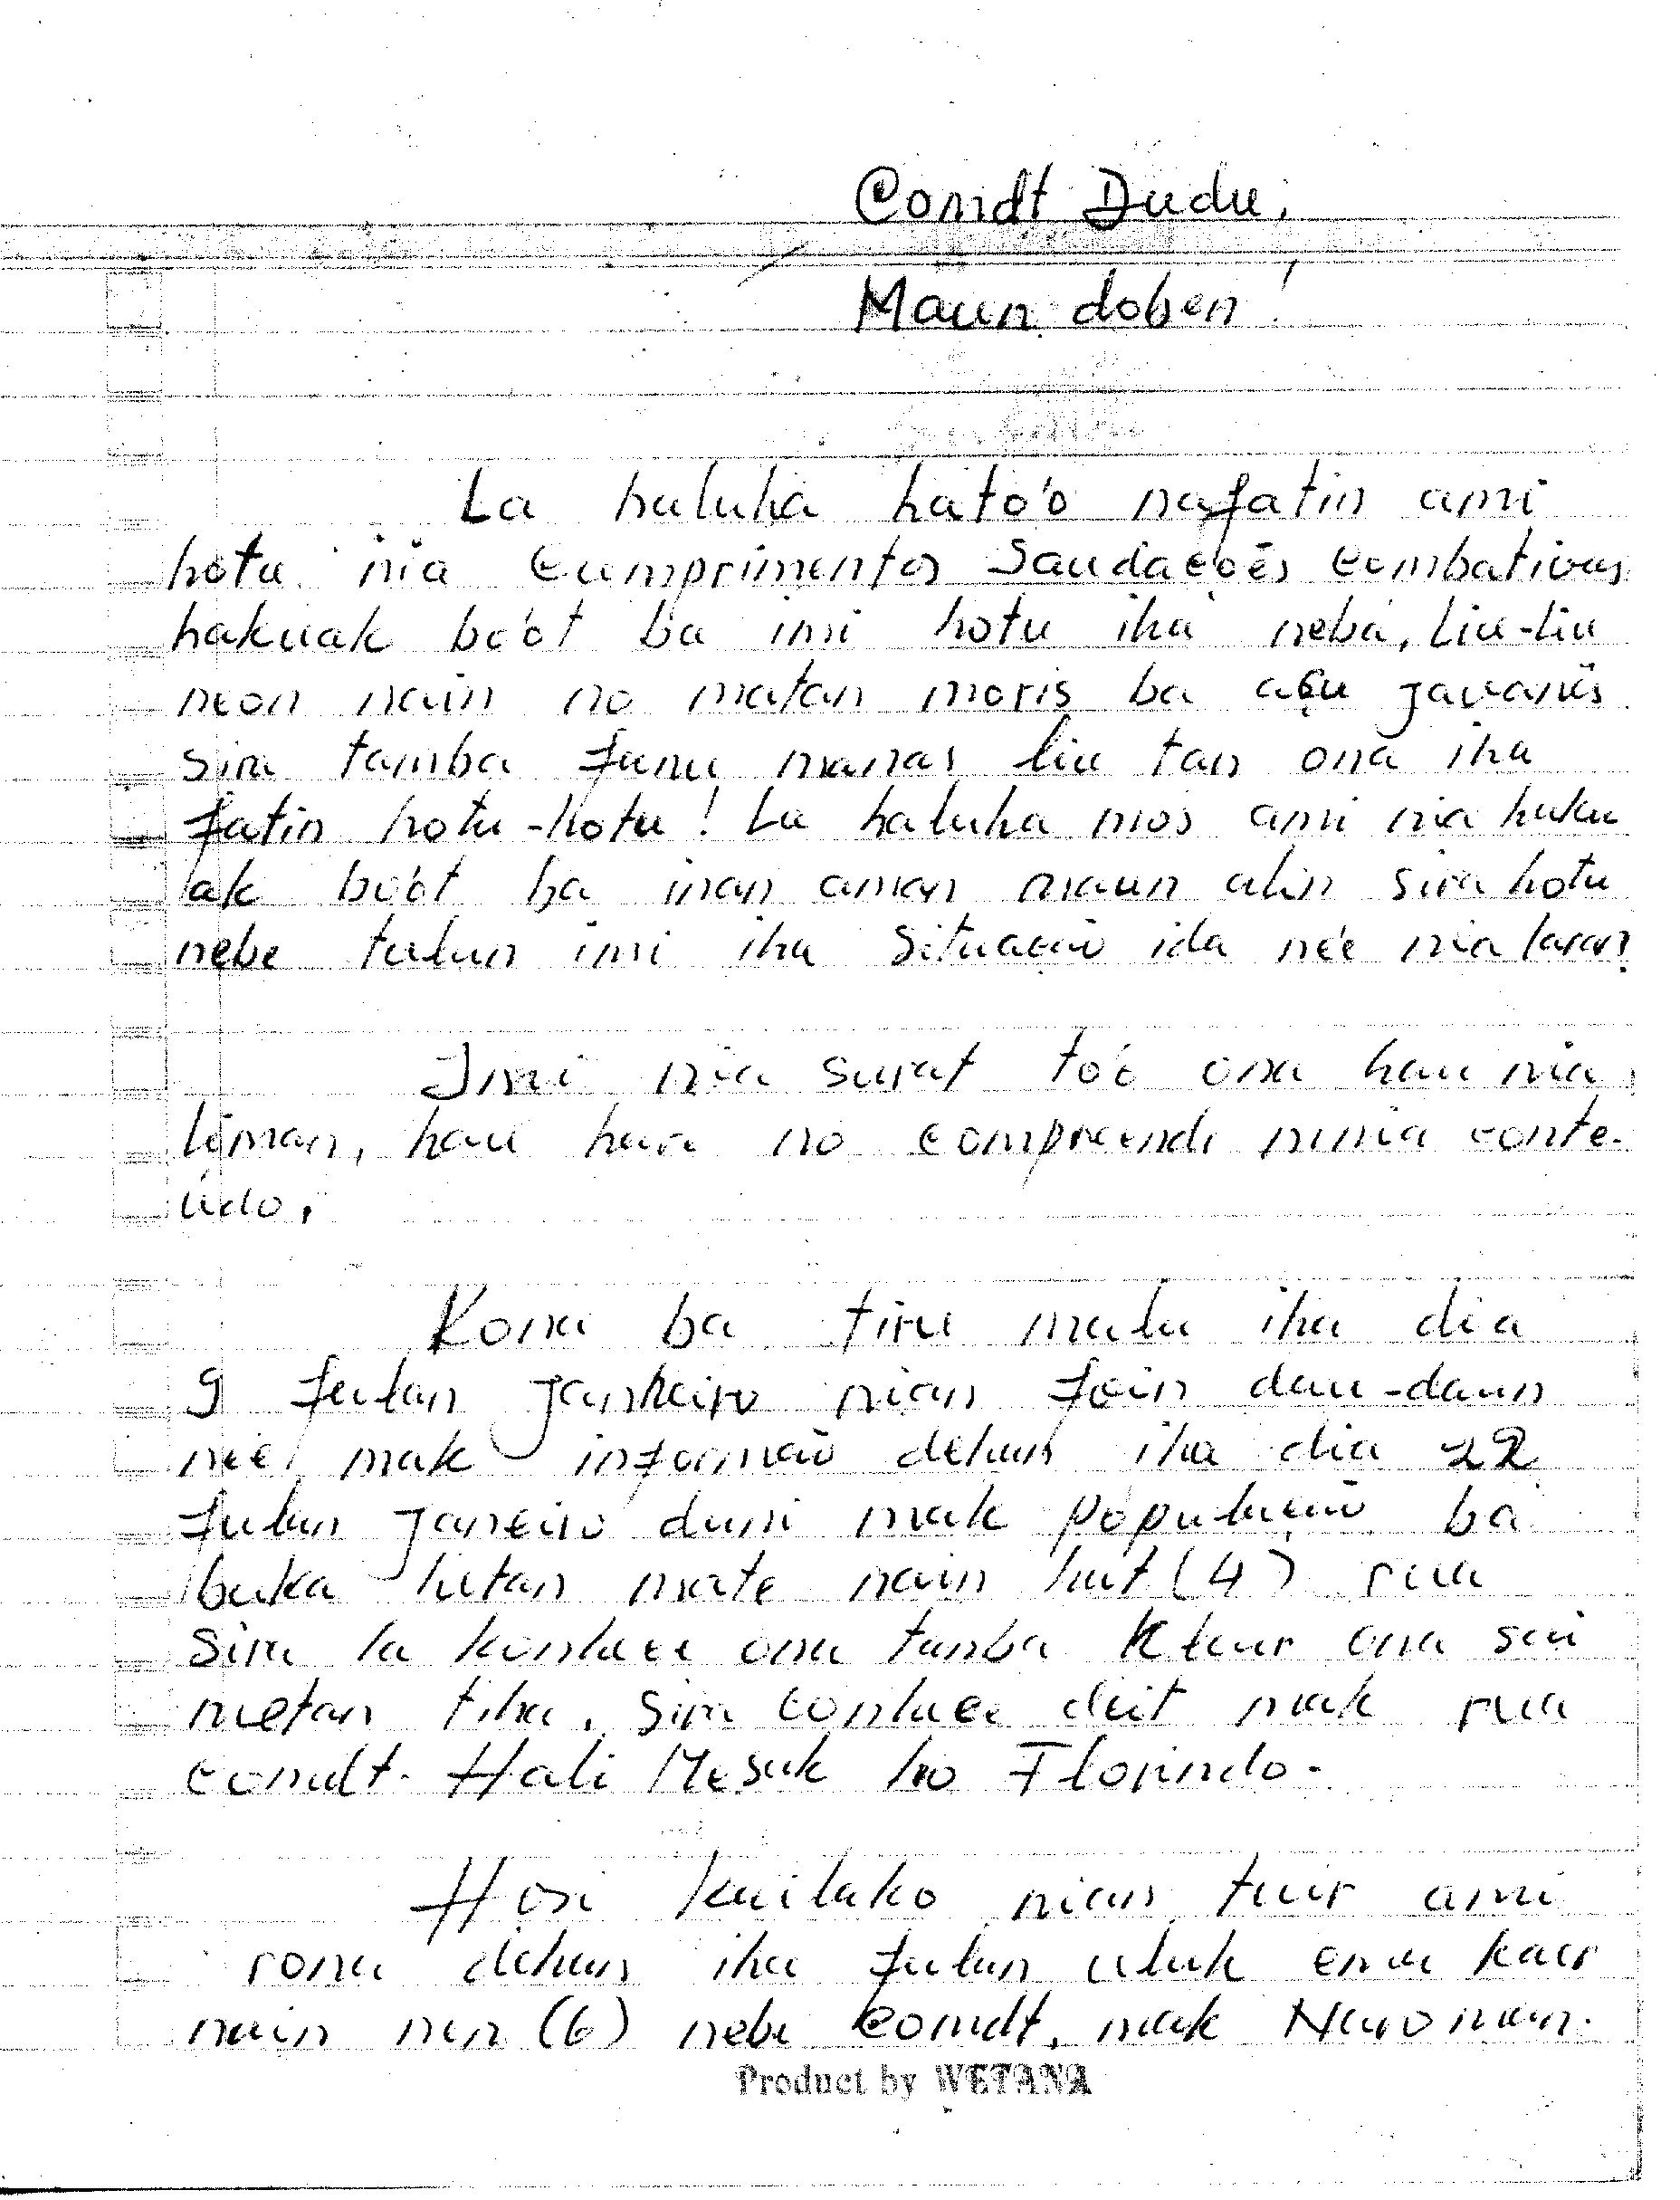 Comdt Dudu,
Maun doben!
La haluha hato'o nafatin ami
hotu nia cumprimentos Saudações combativas
hakuak bo'ot ba imi hotu iha neba, liu-liu
neon nain no matan moris ba asu javanes
sira tamba funu manas liu tan ona iha
fatin hotu-hotu! La haluha mos ami nia haku
ak bo'ot ba inan aman maun alin sira hotu
nebe tulun imi iha Situação ida ne'e nia laran.
Imi nia surat to'o ona hau nia
liman, hau hare no compreende ninia conte-
údo.
Kona ba tiru malu iha dia
9 fulan Janheiro nian foin dau-daun
ne'e, mak informão dehan iha dia 22
fulan Janeiro duni mak população ba
buka hetan mate nain hat (4) rua
sira la konhece ona tanba ktaur ona sai
metan tiha. Sira conhece deit mak rua
comdt. Hali Mesak ho Florindo.
Hosi kailako nian tuir ami
rona dehan iha fulan uluk ema kaer
nain nen (6) nebe Comdt. mak Naroman.
Product by WETANA